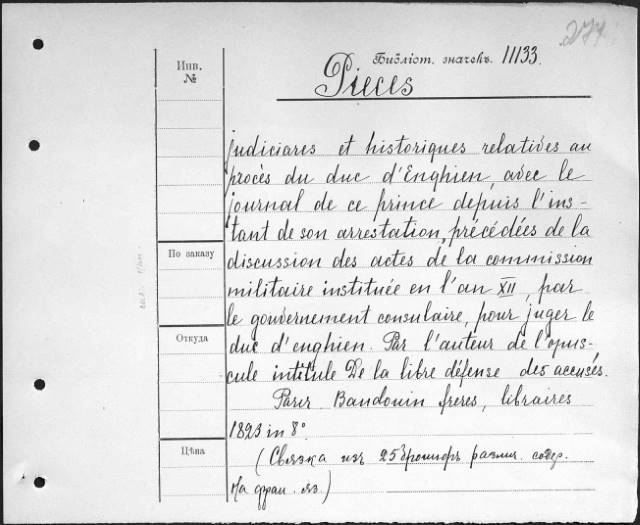 274
Библіот. значекъ. 11133.
Pieces
Инв.
№
judiciares et historiques relatives au
procès du duc d'Enghien, avec le
journal de ce prince depuis l'ins-
tant de son arrestation, précédées de la
По заказу
discussion des actes de la commission
militaire instituée en l'an XII, par
le gouvernement consulaire, pour juger le
Откуда
duc d'enghien. Par l'auteur de l'opus-
cule intitule De la libre défense des accusés.
Paris Baudouin freres, libraires
1823 in 8°
Цѣна
(Связка изъ 25 брошюръ разли. содер.
на фран. яз.)